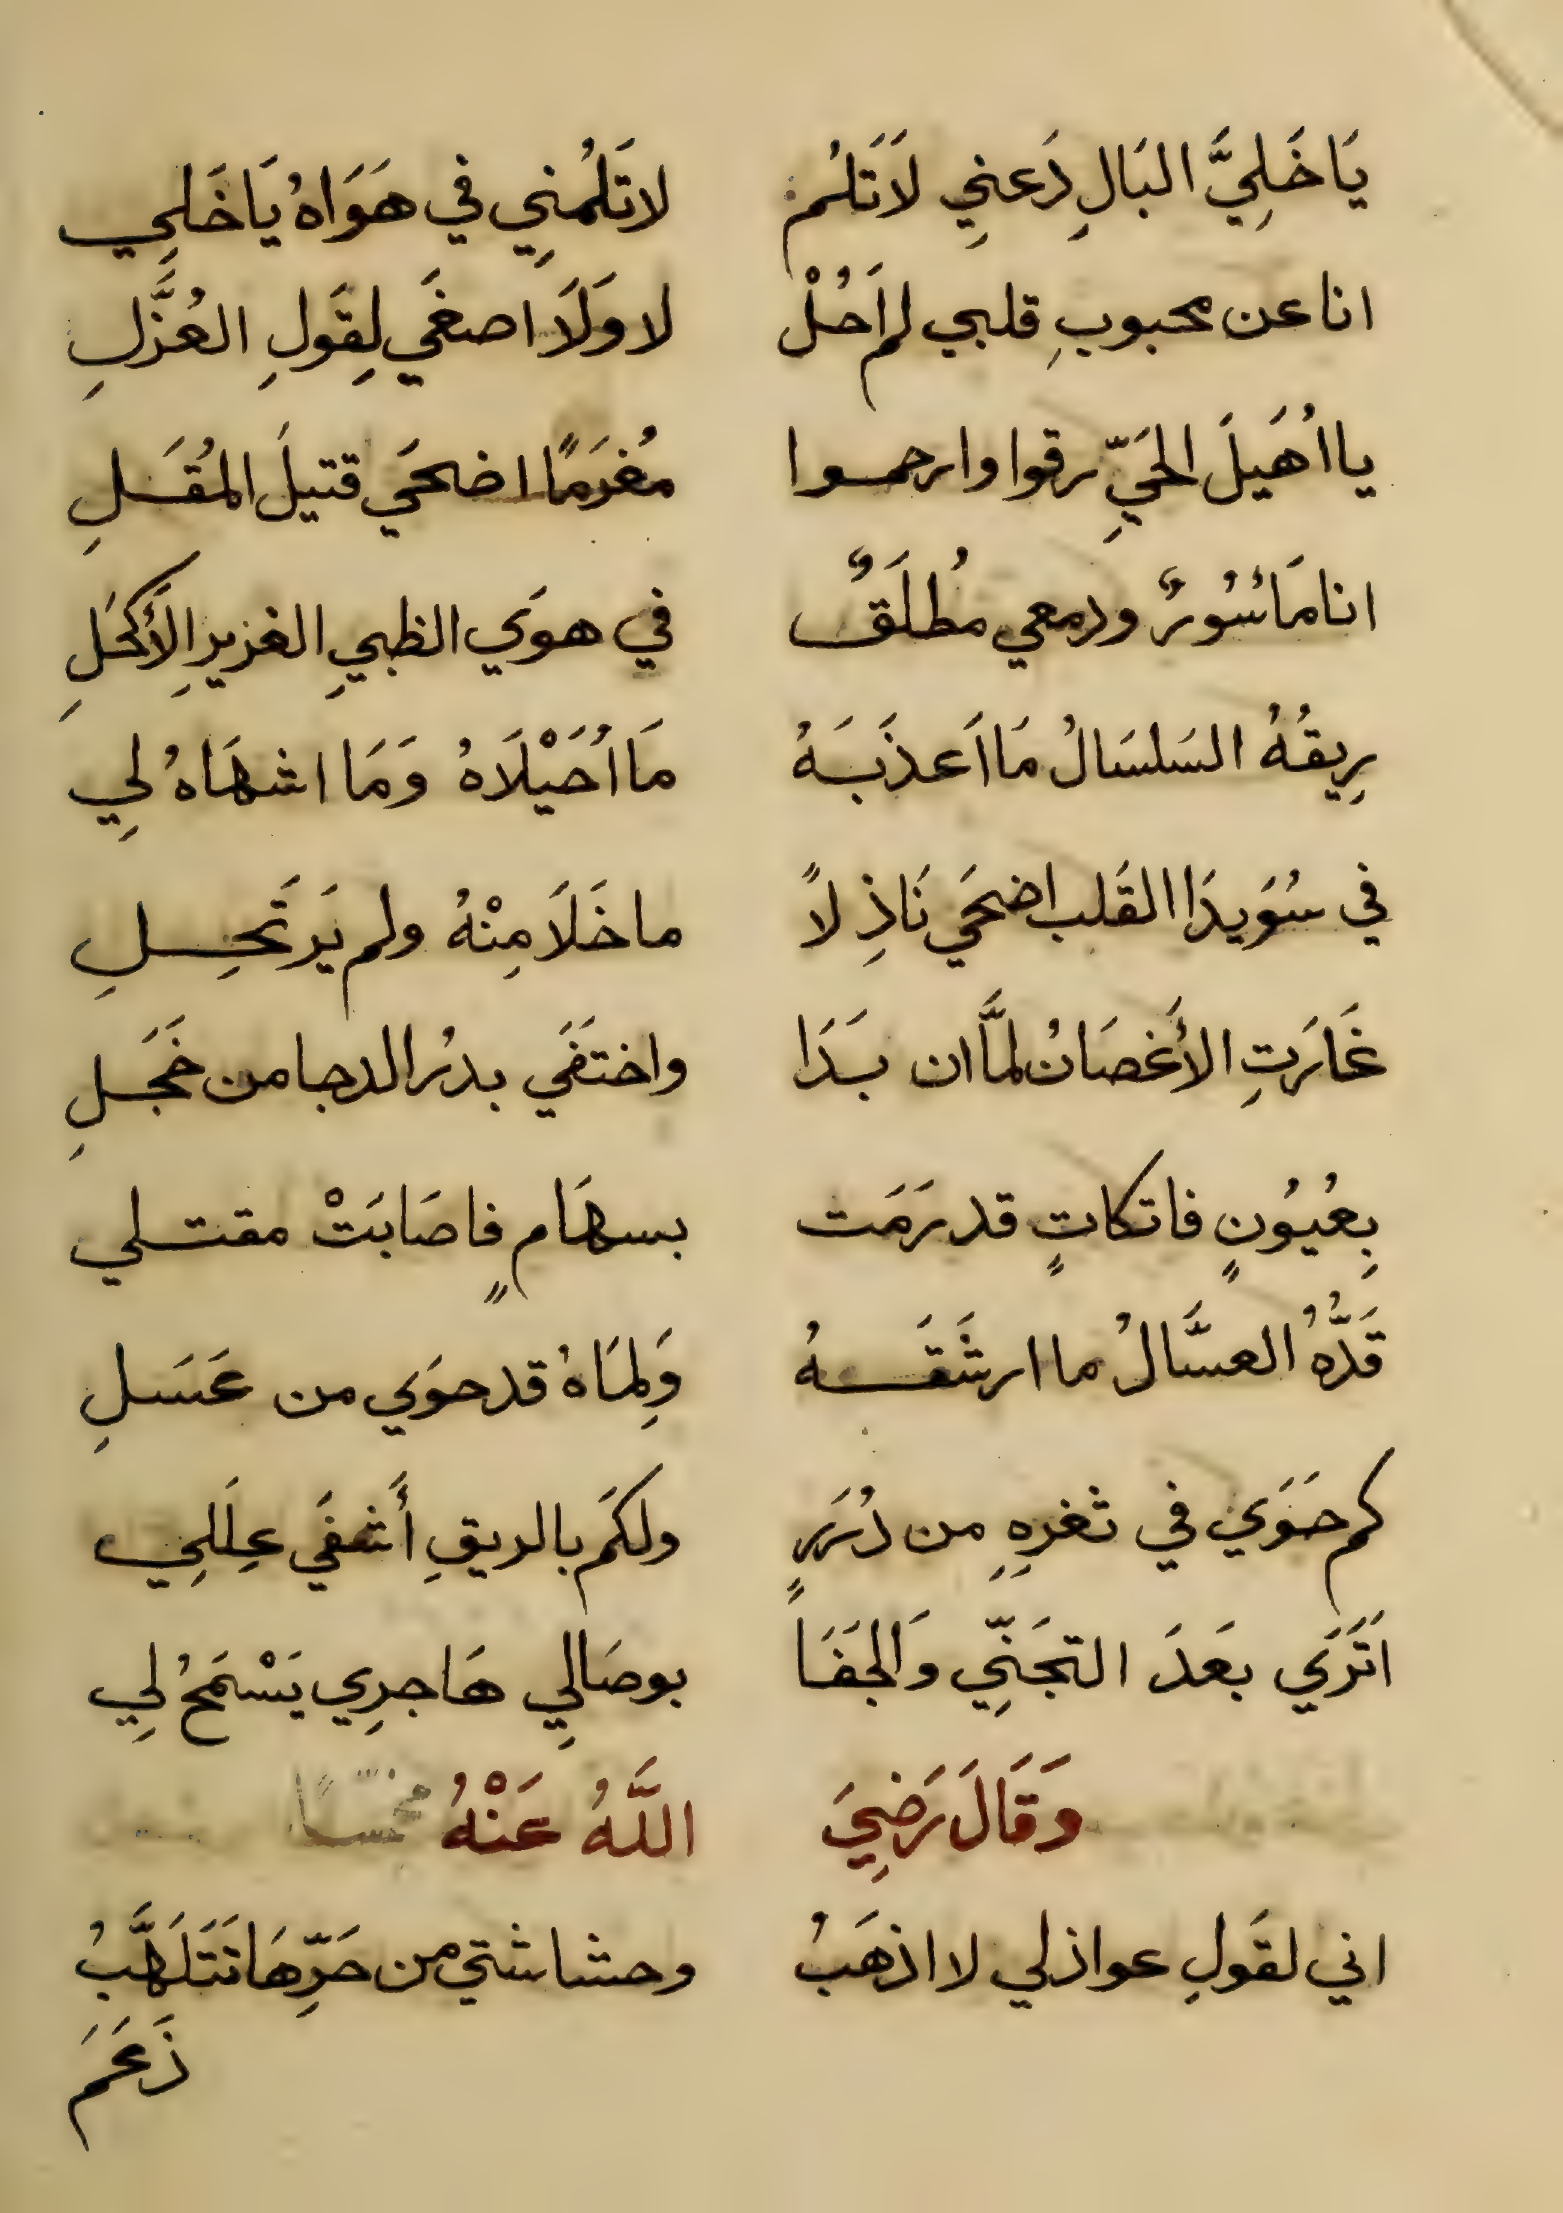 يَا خَلِيَّ البَالِ دَعنِي لَاتَلُم لاتَلُمنِي في هَوَاهُ يَا خَلِي
انا عن محبوبِ قلبي لم اَحُلْ لا وَلَا اصغَي لِقَولِ العُزَّلِ
يا اُهَيلَ الحَيِّ رقوا وارحموا مُغرَمًا اضحَي قتيلَ المُقَلِ
انا مَائسُورٌ ودمعي مُطلَقٌ في هوَي الظبيِ الغزيرِ الأَكحَلِ
رِيقُهُ السَلسَالُ مَا اَعذَبَهُ مَا اُحَيْلَاهُ وَمَا اشهَاهُ لِي
في سُوَيدَا القَلب اضحَي نَاذِلاً ما خَلَا مِنْهُ ولم يَرتَحِلِ
غَارَتِ الأَغصَانُ لمَّا ان بَدَا واختَفَي بدرُ الدجا من خَجَلِ
بِعُيُونٍ فاتكاتٍ قد رَمَت بسهَامٍ فاصَابَتْ مقتلي
قَدُّهُ العسَّالُ ما ارشَقَهُ وَلِمَاهُ قد حوَي من عَسَلِ
كم حَوَي في ثغرِهِ من دُرَرٍ ولكَم بالريقِ أَشفَي عِلَلِي
اَتَرَي بعَدَ التجَنِّي وَالجَفَا بوصَالِي هَاجِرِي يَسْمَحُ لِي
وَقَالَ رَضِيَ اللَّهُ عَنْهُ مخمّسًا
اني لقَولِ عواذلي لا اذهَبُ وحشاشتي من حَرِّهَا تَتَلَهَّبُ
زَعَمَ